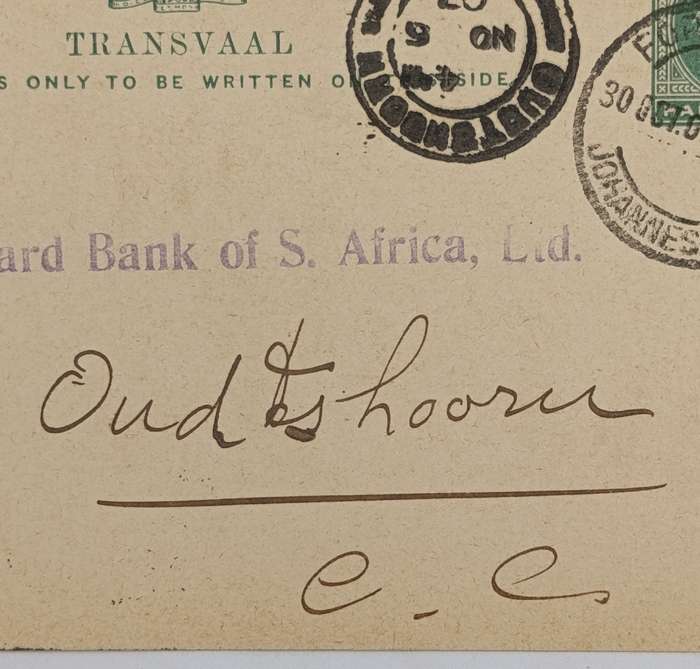 TRANSVAAL
S ONLY TO BE WRITTEN ON SIDE
OUDTSHOORN
4 AM
NO 5
07
30 OCT.0
JOHANNES
ard Bank of S. Africa, Ltd.
Oudtshoorn
C. C.